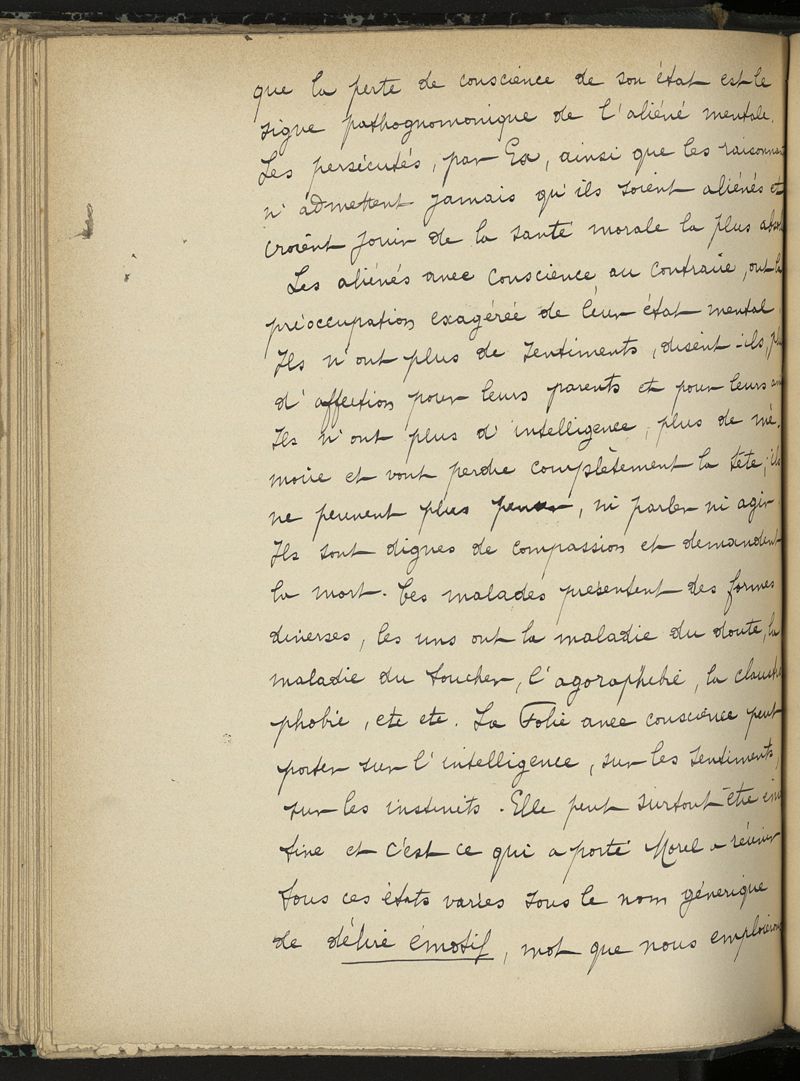 que la perte de conscience de son état est le
signe pathognomonique de l'aliéné mentale.
Les persécutés, par Ex, ainsi que les raisonnant
n'admettent jamais qu'ils soient aliénés et
croient jouir de la santé morale la plus
Les aliénés avec conscience au contraire, ont la
préoccupation exagérée de leur état mental.
Ils n'ont plus de sentiments, disent-ils,
d'affection pour leurs parents et pour leurs
Ils n'ont plus d'intelligence, plus de mé-
moire et vont perdre complètement la tête; ils
ne peuvent plus penser, ni parler ni agir.
Ils sont dignes de compassion et demandent
la mort. Ces malades présentent des formes
diverses, les uns ont la maladie du doute, la
maladie du toucher, l'agoraphobie, la claustro
phobie, etc etc. La Folie avec conscience peut
porter sur l'intelligence, sur les sentiments,
sur les instincts. Elle peut surtout être émo
tive et c'est ce qui a porté Morel a réunir
tous ces états variés sous le nom générique
de délire émotif, mot que nous